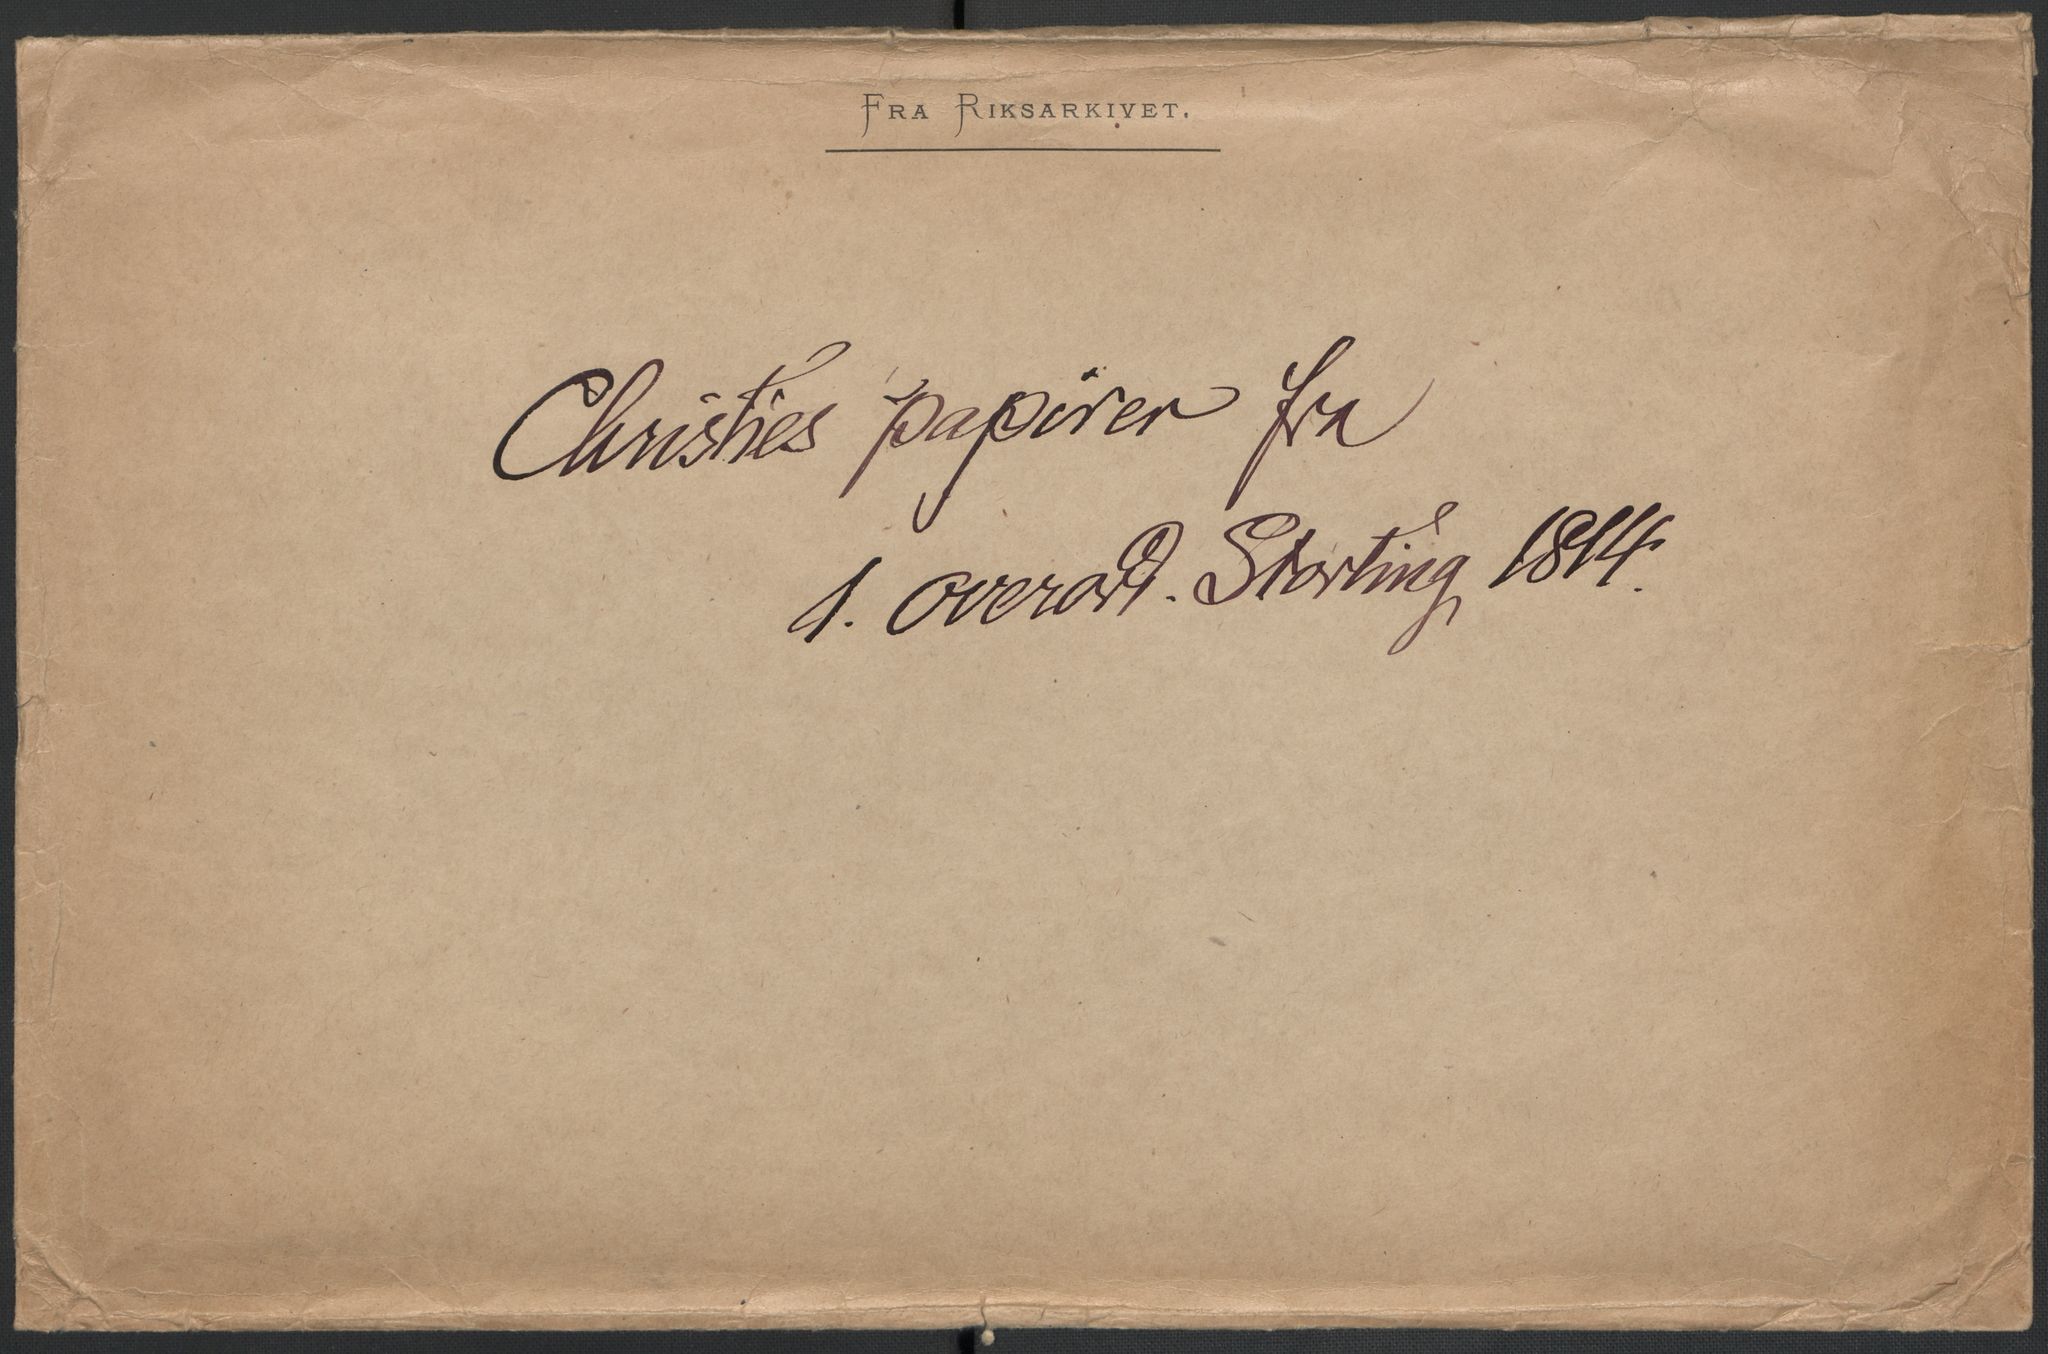 FRA RIKSARKIVET.
Christies papirer fra
1. overord. Storting 1814.